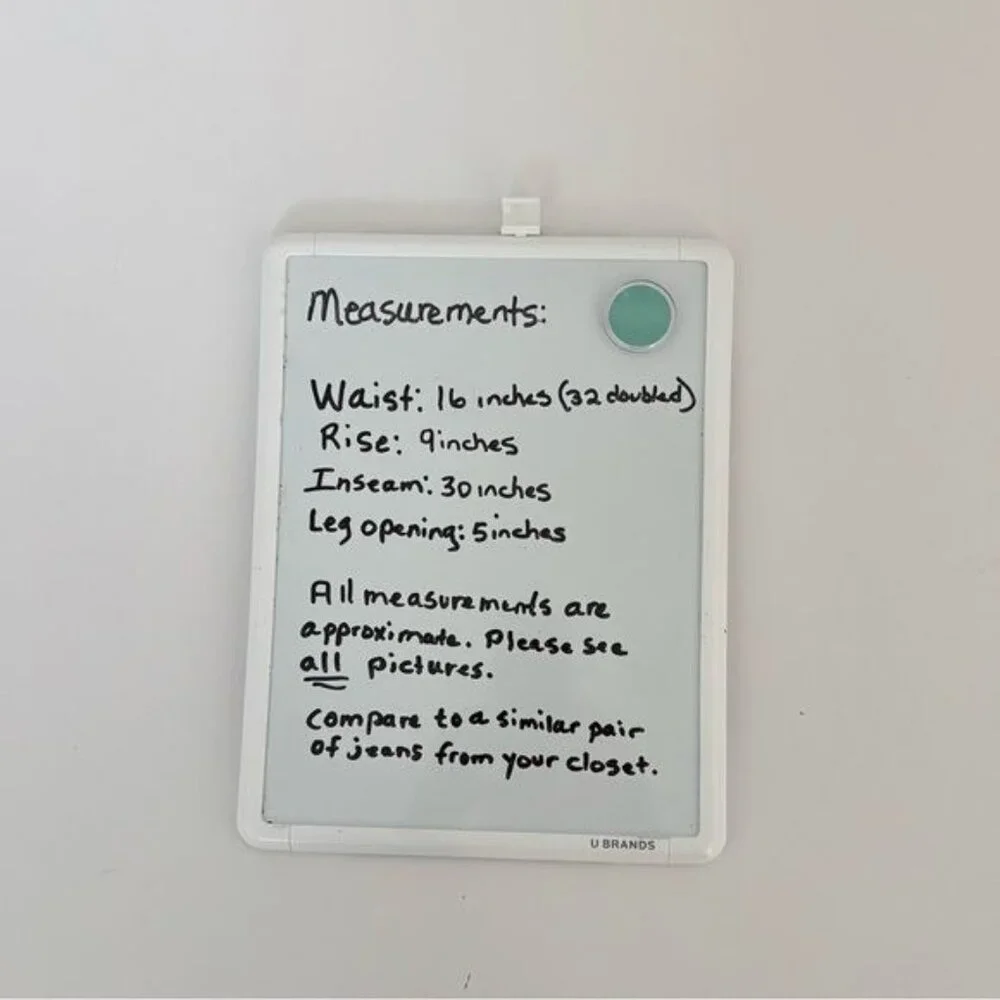 Measurements:
Waist: 16 inches (32 doubled)
Rise: 9 inches
Inseam: 30 inches
Leg opening: 5 inches
All measurements are
approximate. Please see
all pictures.
Compare to a similar pair
of jeans from your closet.
U BRANDS